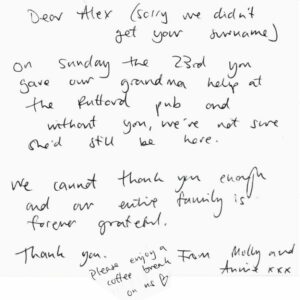 Dear Alex (sorry we didn't
get your surname)
On Sunday the 23rd you
gave our grandma help at
the Rufford pub and
without you, we're not sure
she'd still be here.
We cannot thank you enough
and our entire family is
forever grateful.
Thank you.
Please enjoy a
coffee break
on us ♡
From Molly and
Annie xxx